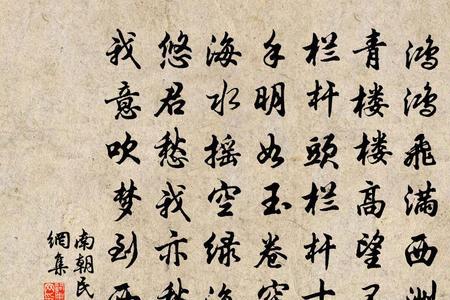 鸿鸿飛满西洲
青楼楼高望
栏杆頭栏杆十
手明如玉卷
海水摇空绿海
悠君愁我亦愁
我意吹梦到西
南朝民
網集